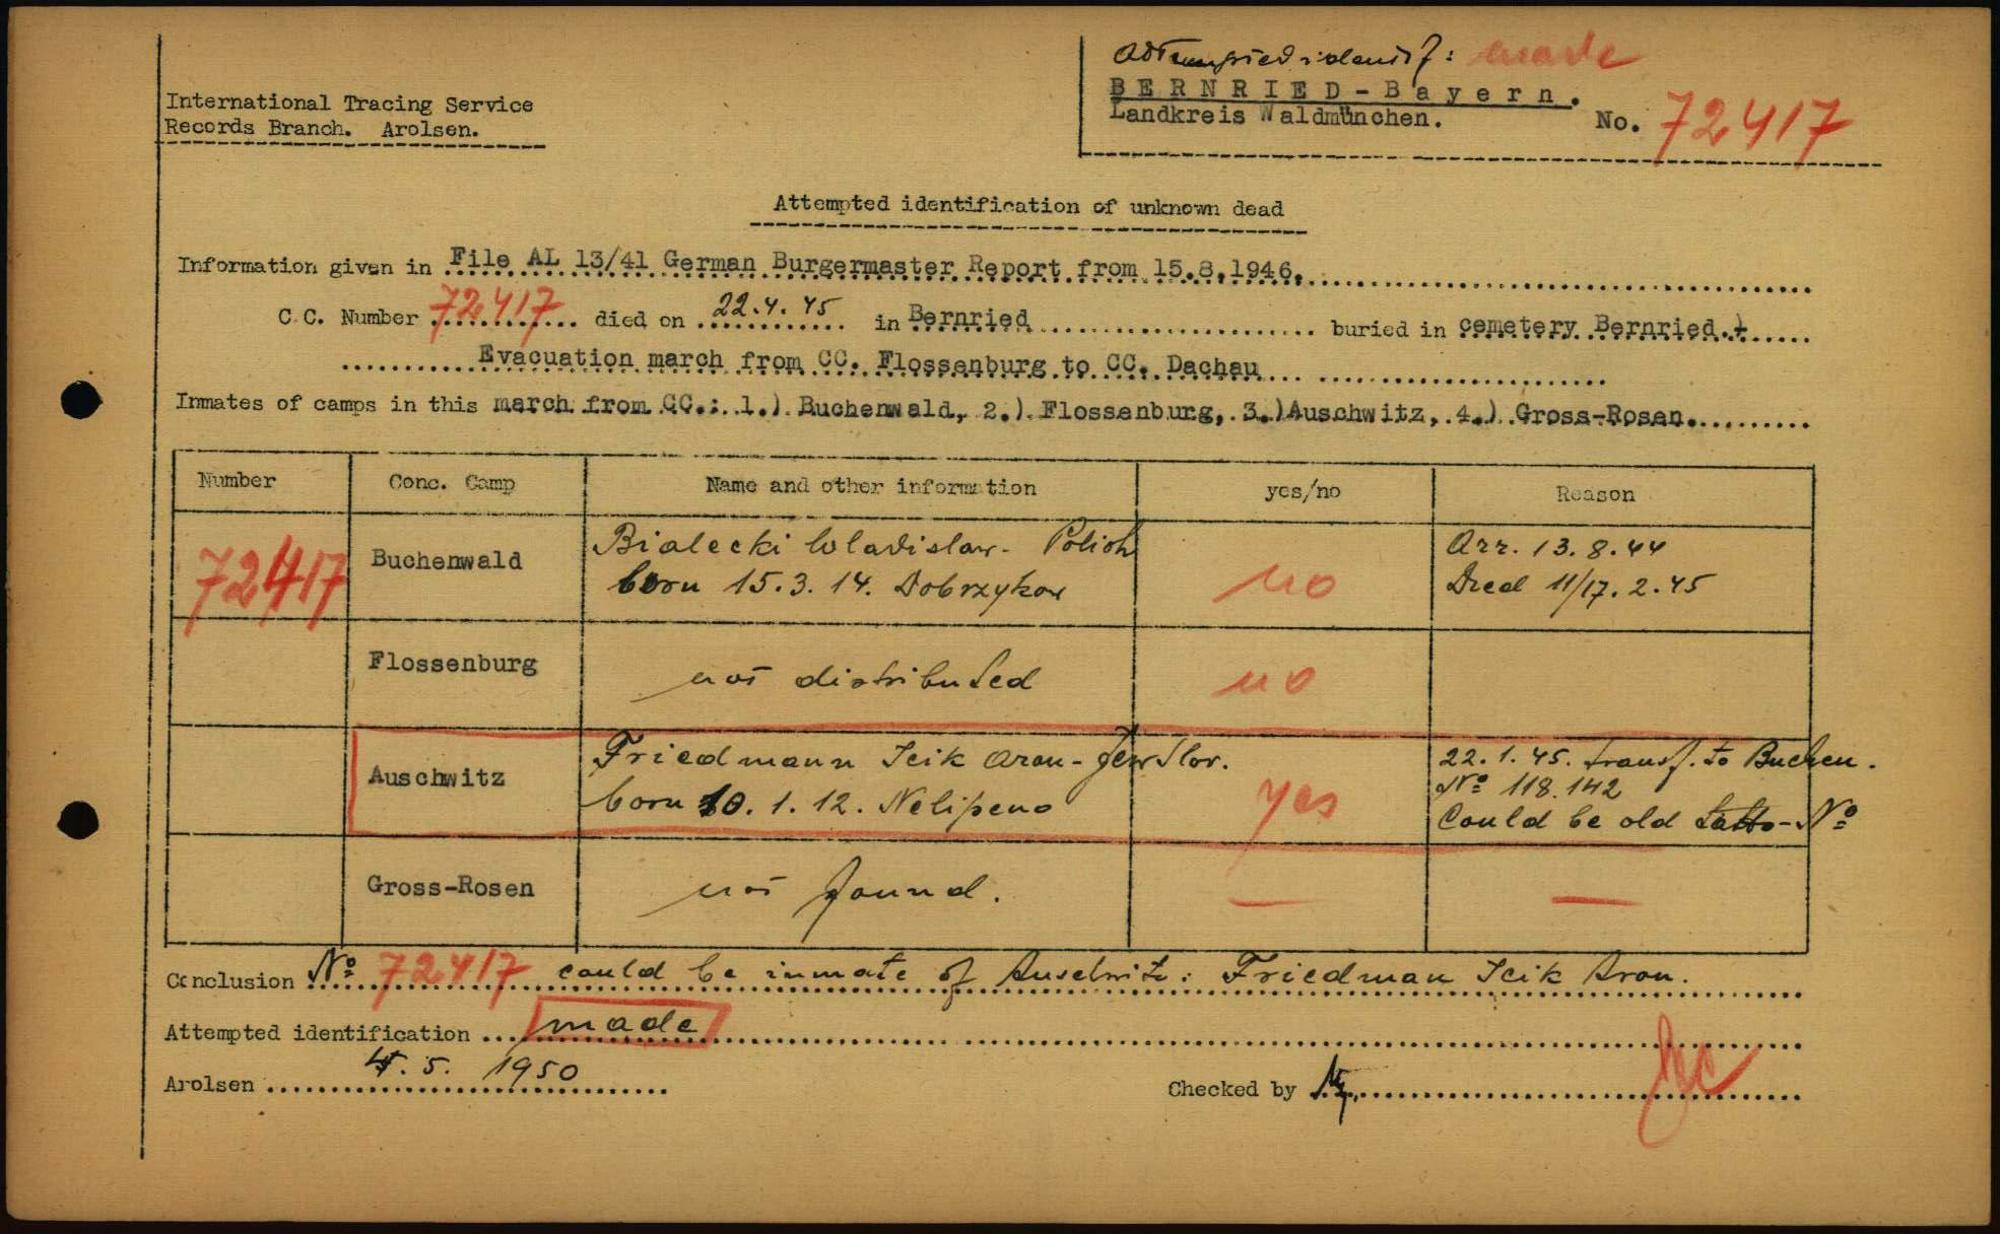 identif: made
BERNRIED-Bayern.
Landkreis Waldmünchen.
No. 72417
International Tracing Service
Records Branch. Arolsen.
Attempted identification of unknown dead
Information given in File AL 13/41 German Burgermaster Report from 15.8.1946.
C.C. Number 72417 died on 22.4.45 in Bernried buried in cemetery Bernried.+
Evacuation march from CC. Flossenburg to CC. Dachau
Inmates of camps in this march from CC.: 1.) Buchenwald, 2.) Flossenburg, 3.)Auschwitz, 4.) Gross-Rosen.
Number Conc. Camp Name and other information yes/no Reason
72417 Buchenwald Bialecki Wladislaw- Polish no Arr. 13.8.44
born 15.3.14. Dobrzykow Died 11/17.2.45
Flossenburg not distributed no
Auschwitz Friedmann Icik Aron- Jew Slov. yes 22.1.45. transf. to Buchen.
born 10.1.12. Nelipeno Nº 118.142
Could be old tatto-Nº
Gross-Rosen not found. — —
Conclusion Nº 72417 could be inmate of Auschwitz: Friedman Icik Aron.
Attempted identification made
Arolsen 4.5. 1950
Checked by